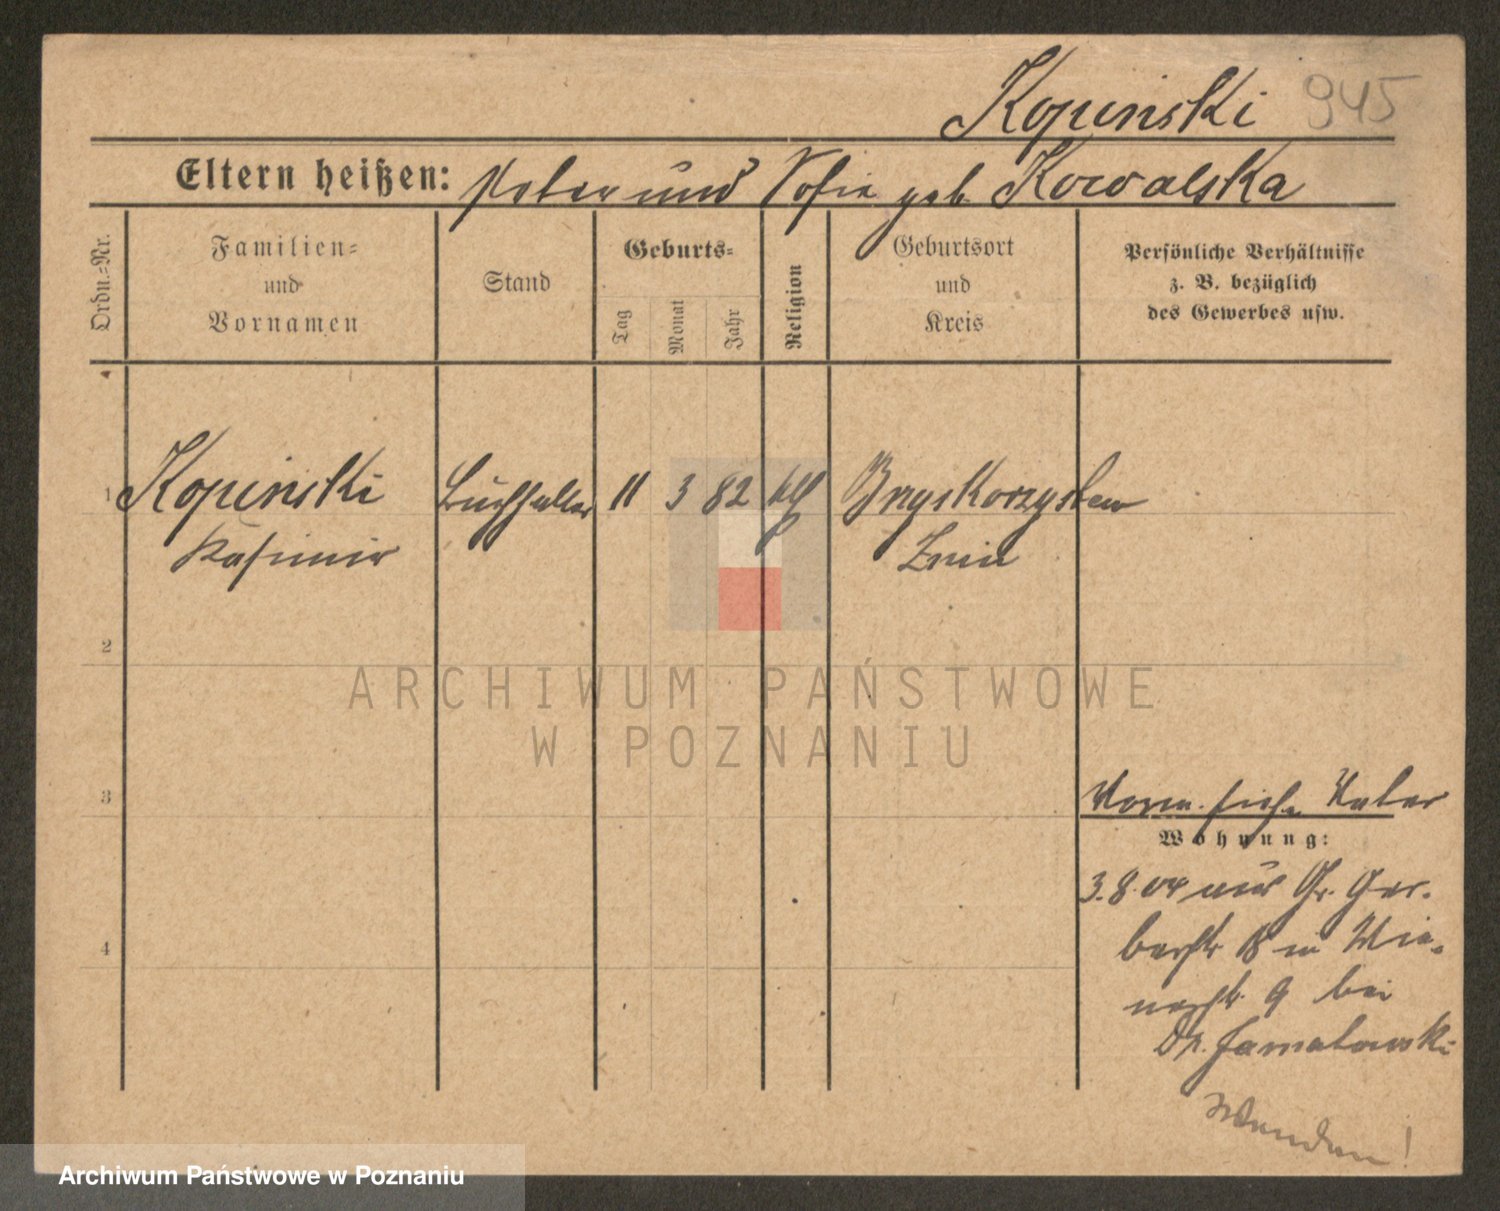 Kopinski 945
Eltern heißen: Peter und Sofia geb. Kowalska
Ordn.=Nr.
Familien=
und
Vornamen
Stand
Geburts=
Tag
Monat
Jahr
Religion
Geburtsort
und
Kreis
Persönliche Verhältnisse
z. B. bezüglich
des Gewerbes usw.
1 Kopinski Buchhalter 11 3 82 kth
Kasimir Znin
2
3
Vorm. siehe Vater
Wohnung:
3.8.04 aus Gr. Ger-
berstr 18 in Wie-
nerstr. 9 bei
Dr. Jarnatowski
4
Wenden!
ARCHIWUM PAŃSTWOWE
W POZNANIU
Archiwum Państwowe w Poznaniu